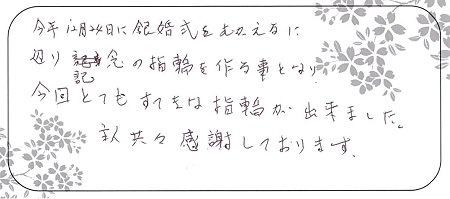 今年12月24日に銀婚式をむかえるに
辺り記念の指輪を作る事となり
今回とてもすてきな指輪が出来ました。
主人共々感謝しております。